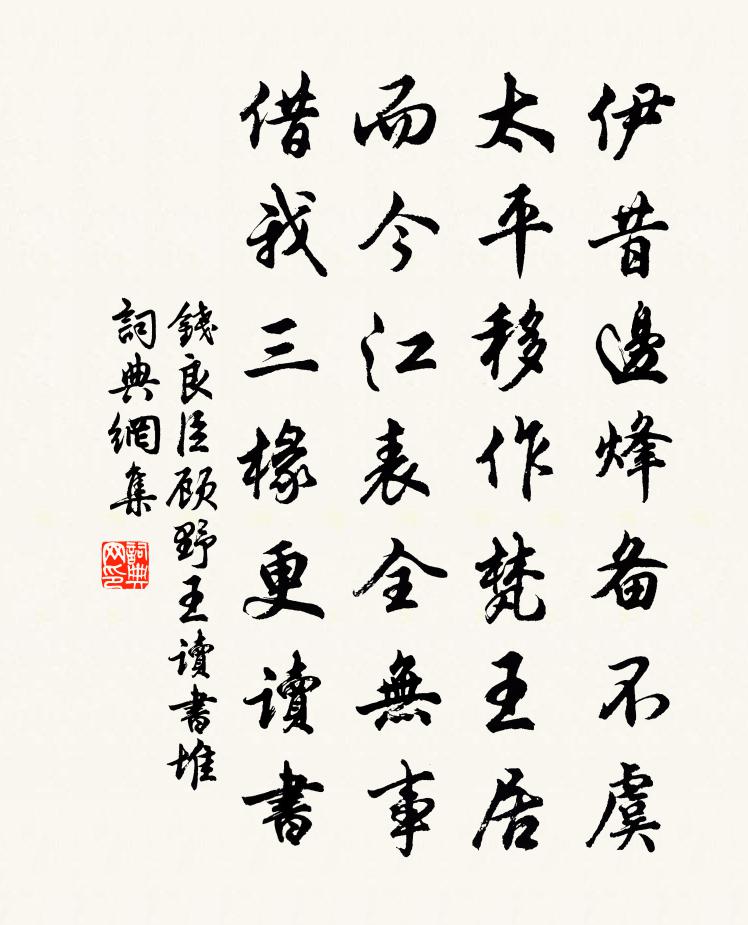 伊昔邊烽备不虞
太平移作梵王居
而今江表全無事
借我三椽更讀書
錢良臣顾野王讀書堆
詞典網集
詞典
网印